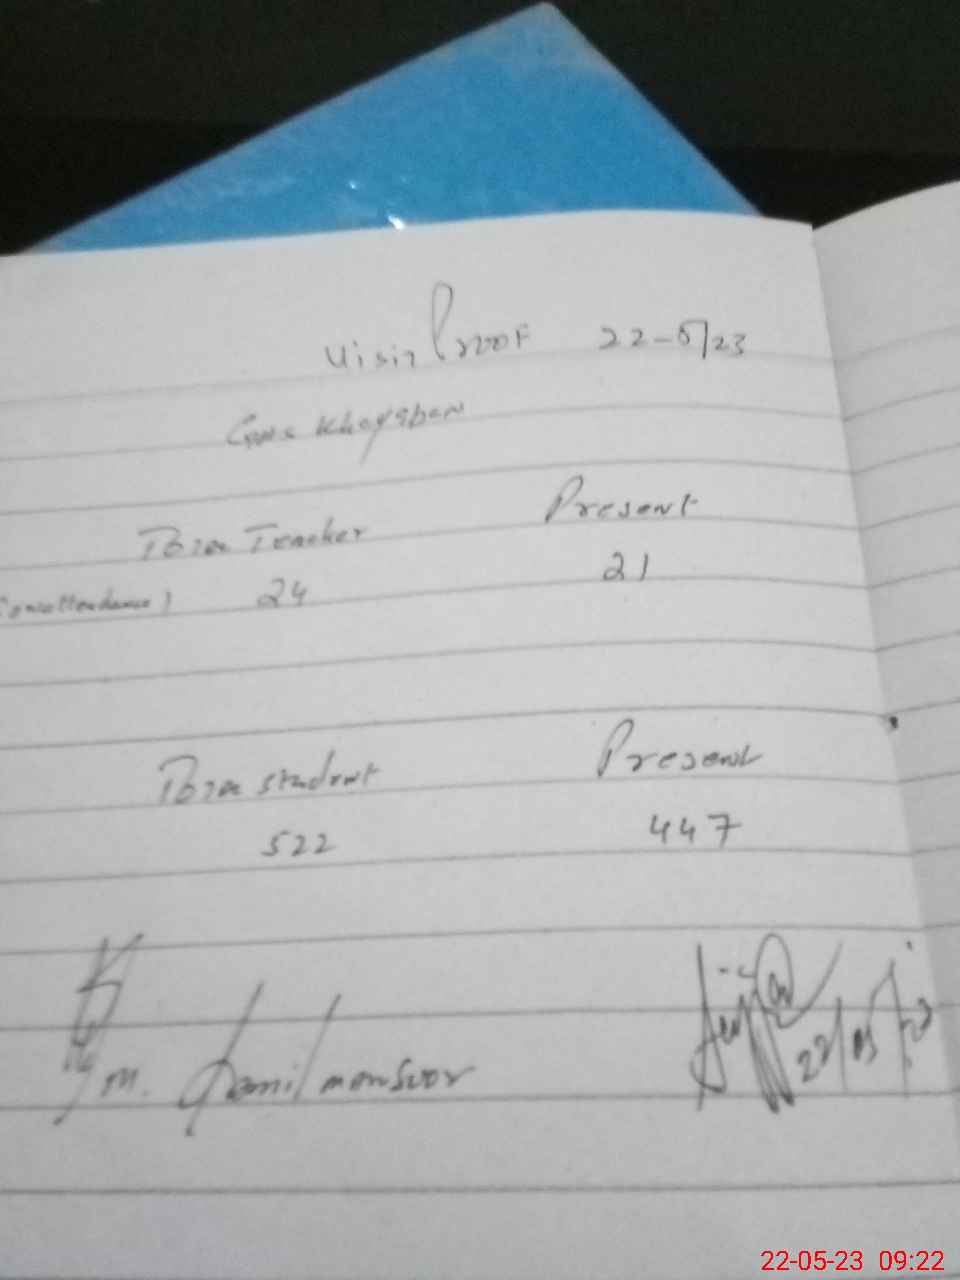 Visit Proof 22-5/23
Khayaban
Total Teacher Present
24 21
Total student Present
522 447
M. Jamil mansoor
22/05/23
22-05-23 09:22